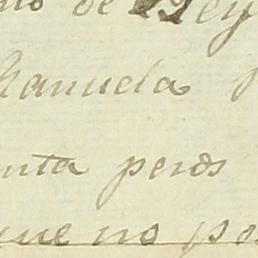 de Rey
Manuela
nta peros
que no po